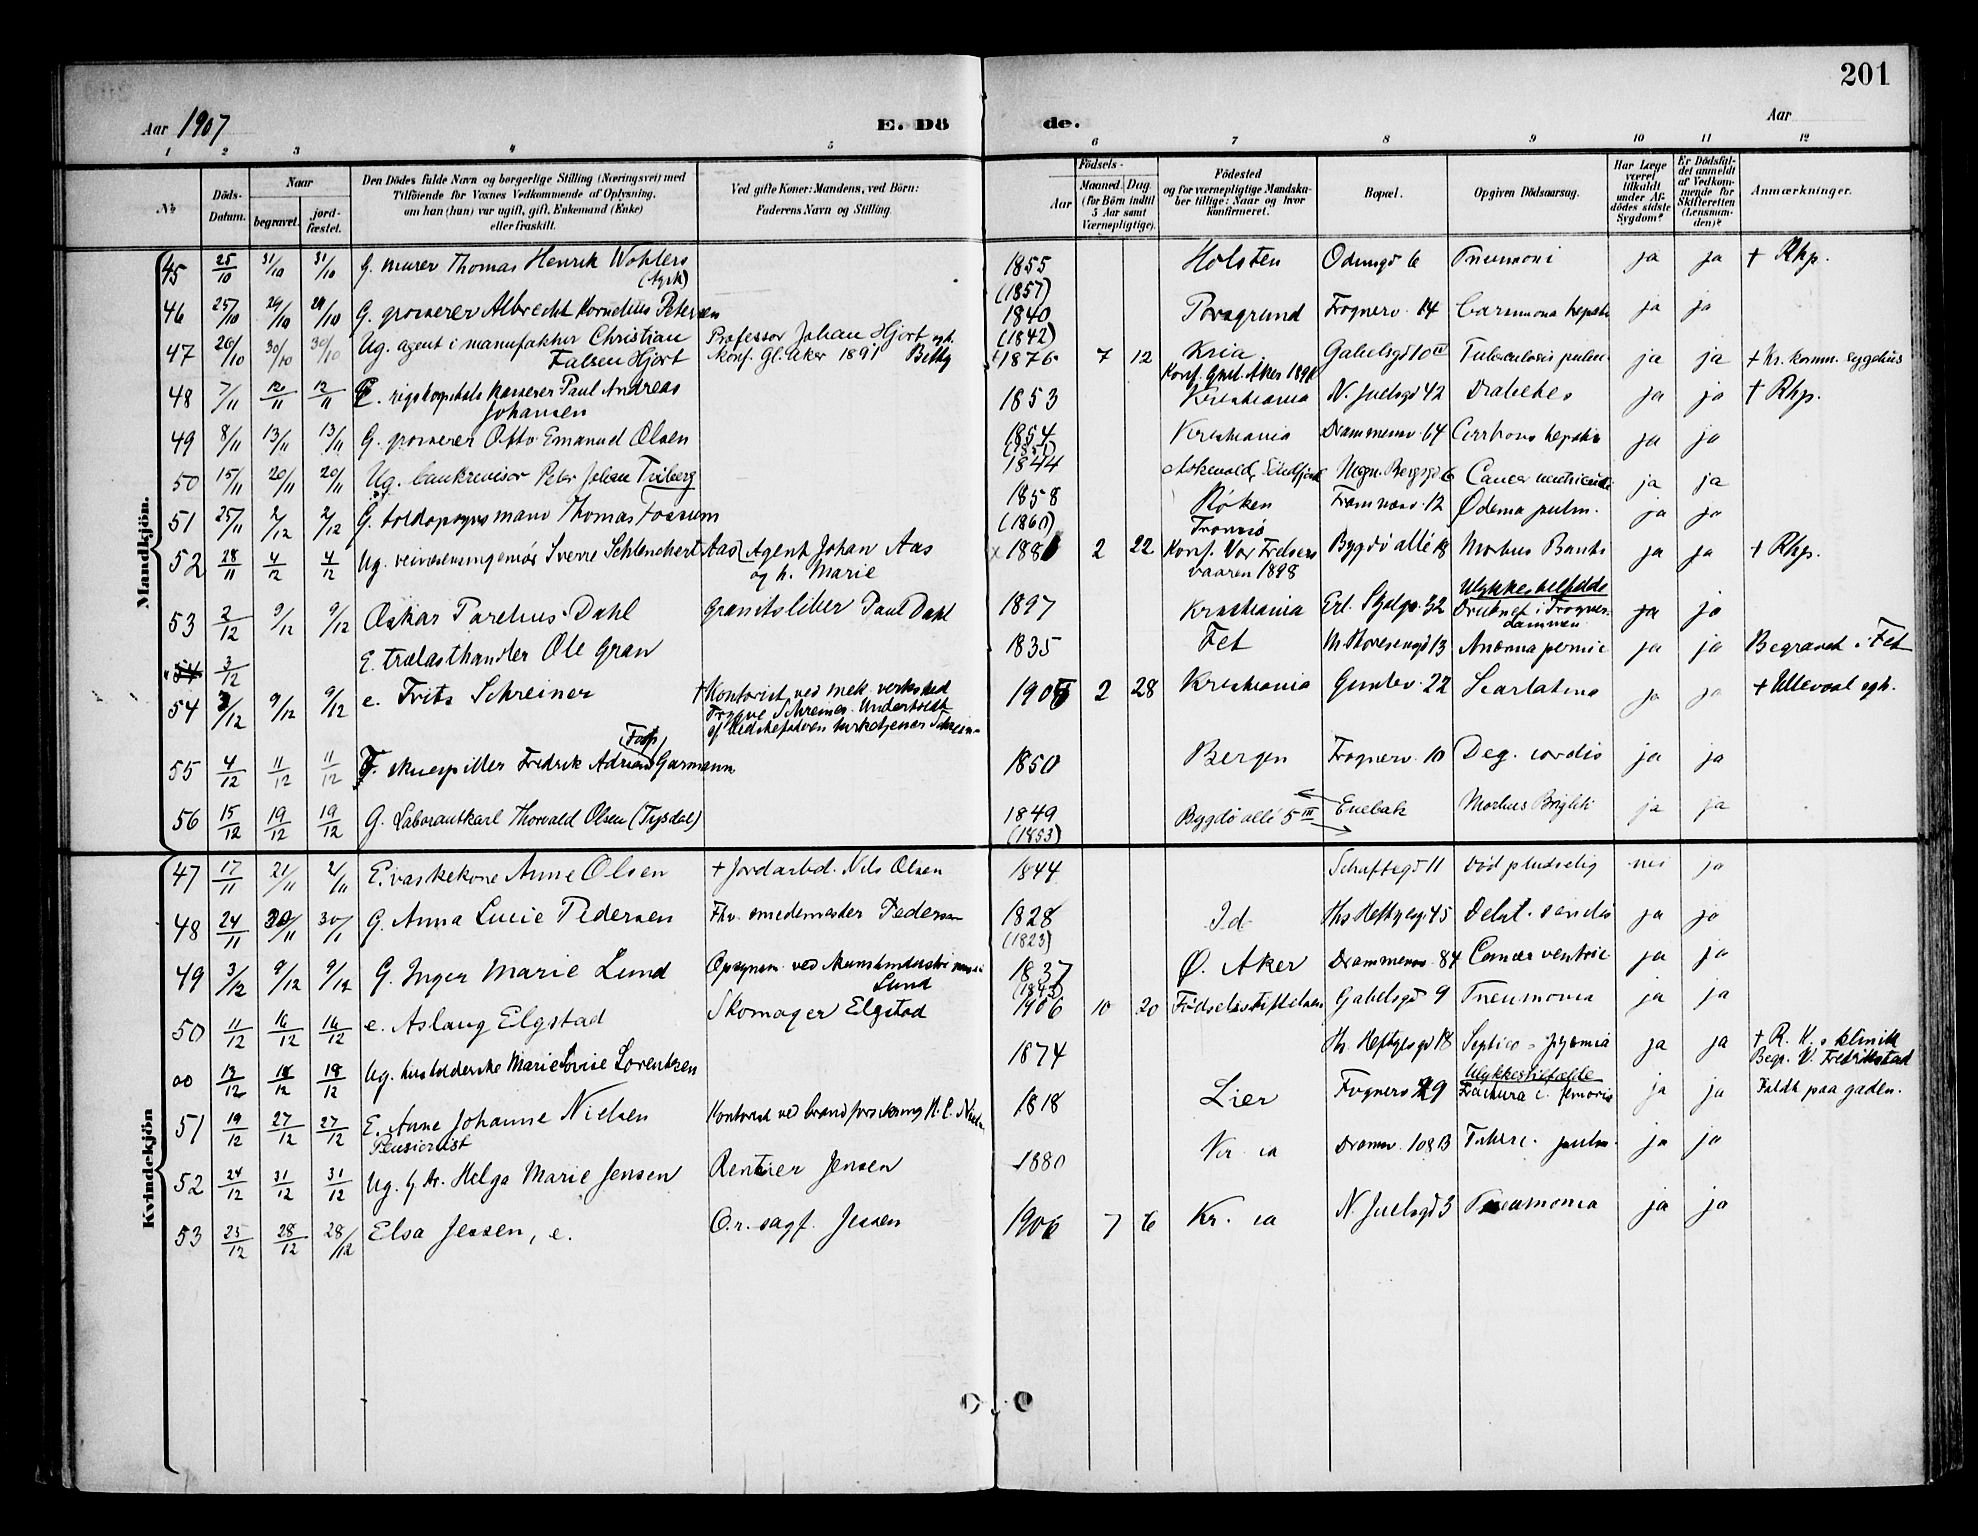 201
Aar 1907 E. Dö de. Aar
1 2 3 4 5 6 7 8 9 10 11 12
No. Döds-Datum. Naar begravet. jord-fæstet. Den Dödes fulde Navn og borgerlige Stilling (Næringsvei) med Tilföiende for Voxnes Vedkommende af Oplysning, om han (hun) var ugift, gift, Enkemand (Enke) eller fraskilt. Ved gifte Koner: Mandens, ved Börn: Faderens Navn og Stilling. Aar Födsels- Maaned. Dag. (for Börn indtil 5 Aar samt Værnepligtige). Födested og for værnepligtige Mandskaber tillige: Naar og hvor konfirmeret. Bopæl. Opgiven Dödsaarsag. Har Læge været tilkaldt under Afdödes sidste Sygdom? Er Dödsfaldet anmeldt af Vedkommende for Skifteretten (Lensmanden)? Anmærkninger.
Mandkjön.
45 25/10 31/10 31/10 G. murer Thomas Henrik Wohlers (tysk) 1855 (1857) Holsten Odinsgd 6 Pneumoni ja ja + Rhp.
46 25/10 29/10 29/10 G. grosserer Albrecht Kornelius Petersen 1840 (1842) Porsgrund Frognerv. 14 hepatis ja ja
47 26/10 30/10 30/10 Ug. agent i manufaktur Christian Falsen Hjort Professor Johan Hjort og h. Betty konf. Gl. Aker 1891 1876 7 12 Kria. Konf. Gml. Aker 1891 Gabelsgd 10 III Tuberculosis pulm. ja ja + Kr. komm. sygehus
48 7/11 12/11 12/11 E. rigshospitals kasserer Paul Andreas Johansen 1853 Kristiania N. Juelsgd 42 Diabetes ja ja + Rhp.
49 8/11 13/11 13/11 G. grosserer Otto Emanuel Olsen 1854 Kristiania Drammensv. 64 Cirrhosis hepatis ja ja
50 15/11 20/11 20/11 Ug. bankrevisor Peter Johan Friberg 1844 Askevold, Magn. Bergsgd 6 Cancer ventriculi ja ja
51 25/11 2/12 2/12 G. toldopsynsmand Thomas Fossum 1858 (1860) Røken Framnæsv. 12 Ødema pulm. ja ja
52 28/11 4/12 4/12 Ug. veivæsensingeniør Sverre Schlenchert Aas Agent Johan Aas og h. Marie 1881 2 22 Tromsø Konf. Vor Frelsers vaaren 1898 Bygdø allé 18 Morbus Banti ja ja + Rhp.
53 2/12 9/12 9/12 Oskar Parelius Dahl Granitsliber Paul Dahl 1897 Kristiania Erl. Skjalgs. 32 Ulykkestilfælde Druknet i Frognerdammen ja ja
54 3/12 E. trælasthandler Ole Gran 1835 Fet Th. Meyersgd 13 Anæmia pernic. ja ja Begravet i Fet
54 3/12 9/12 9/12 e. Frits Schreiner + Kontorist ved mek. verksted Trygve Schreiner. Underholdt af bedstefaderen kirketjener Schreiner 1905 2 28 Kristiania Gimlev. 22 Scarlatina ja ja + Ullevaal sgh.
55 4/12 11/12 11/12 F. skuespiller Fredrik Adrian (Fasp) Garmann 1850 Bergen Frognerv. 10 Deg. cordis ja ja
56 15/12 19/12 19/12 G. Laborantkarl Thorvald Olsen (Tysdal) 1849 (1853) Bygdö allé 5 III Enebak Morbus Brighti ja ja
Kvindekjön
47 17/11 21/11 21/11 E. vaskekone Anne Olsen + Jordarbd. Nils Olsen 1844 Schaftsgd 11 Död pludselig nei ja
48 24/11 30/11 30/11 G. Anna Lucie Pedersen Fhv. smedemester Pedersen 1828 (1823) Id Ths. Heftyesgd 45 Debil. senilis ja ja
49 3/12 9/12 9/12 G. Inger Marie Lund Opsynsm. ved Kunstindustrimuseet Lund 1837 (1843) Ø. Aker Drammensv. 84 Cancer ventric. ja ja
50 11/12 16/12 16/12 e. Aslaug Elgstad Skomager Elgstad 1906 10 20 Födselsstiftelsen Gabelsgd 9 Pneumonia ja ja
00 13/12 18/12 18/12 Ug. husholderske Marie Lovise Lorentzen 1874 Th. Heftyesgd 18 Septico-pyæmia ja ja + R. H.s klinik Begr. V. Fredrikstad
51 19/12 27/12 27/12 E. Anne Johanne Nielsen Pensionist Kontorist ved brandforsikring N. C. Nielsen 1818 Lier Frognerv 29 Ulykkestilfælde Fractura c. femoris ja ja Faldt paa gaden.
52 24/12 31/12 31/12 Ug. Helga Marie Jensen Rentier Jensen 1880 Kr. ia Dramv. 108 B Tuberc. pulm. ja ja
53 25/12 28/12 28/12 Elsa Jessen, e. O.r. sagf. Jessen 1906 7 6 Kr. ia N. Juelsgd 3 Pneumonia ja ja